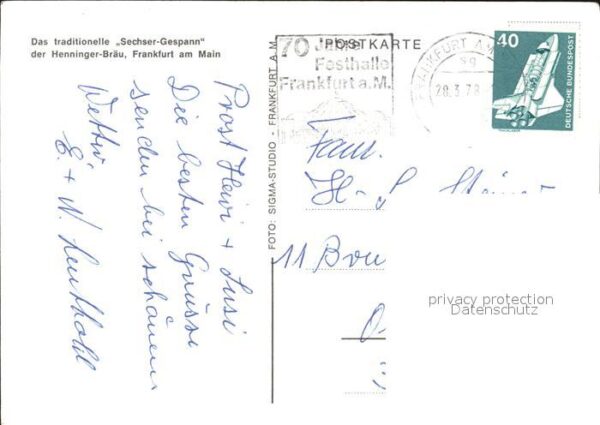 Das traditionelle „Sechser-Gespann"
der Henninger-Bräu, Frankfurt am Main
POSTKARTE
70 Jahre
Festhalle
Frankfurt a.M.
FRANKFURT AM
28.3.79
40
DEUTSCHE BUNDESPOST
FOTO: SIGMA-STUDIO - FRANKFURT A M
Prost Heiri + Susi
Die besten Grüsse
senden bei schönem
Wetter
E. + W. Leuthold
Fam.
H.
11
privacy protection
Datenschutz